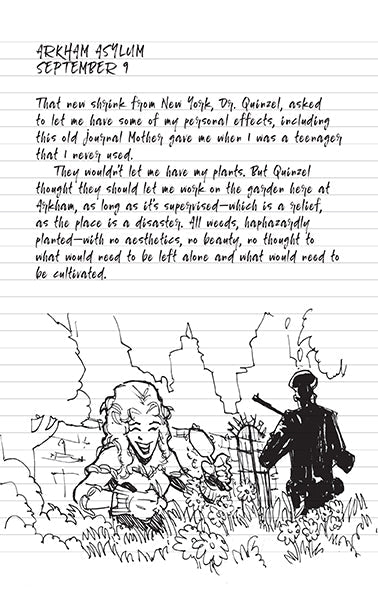 ARKHAM ASYLUM
SEPTEMBER 9
That new shrink from New York, Dr. Quinzel, asked
to let me have some of my personal effects, including
this old journal Mother gave me when I was a teenager
that I never used.
They wouldn't let me have my plants. But Quinzel
thought they should let me work on the garden here at
Arkham, as long as it's supervised—which is a relief,
as the place is a disaster. All weeds, haphazardly
planted—with no aesthetics, no beauty, no thought to
what would need to be left alone and what would need to
be cultivated.